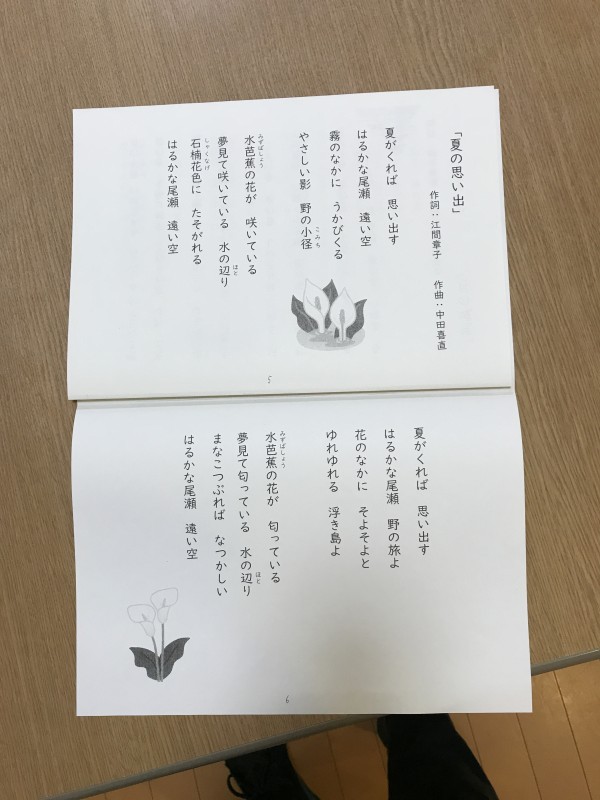 「夏の思い出」
作詞：江間章子　作曲：中田喜直
夏がくれば　思い出す
はるかな尾瀬　遠い空
霧のなかに　うかびくる
やさしい影　野の小径
こみち
水芭蕉の花が　咲いている
みずばしょう
夢見て咲いている　水の辺り
ほと
石楠花色に　たそがれる
しゃくなげ
はるかな尾瀬　遠い空
5
夏がくれば　思い出す
はるかな尾瀬　野の旅よ
花のなかに　そよそよと
ゆれゆれる　浮き島よ
水芭蕉の花が　匂っている
みずばしょう
夢見て匂っている　水の辺り
ほと
まなこつぶれば　なつかしい
はるかな尾瀬　遠い空
6